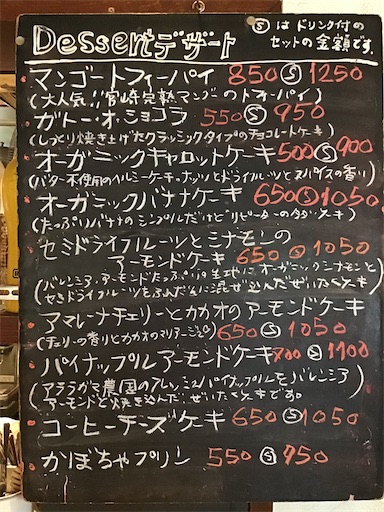 Dessert デザート
Ⓢはドリンク付の
セットの金額です。
マンゴートフィーパイ 850 Ⓢ 1250
(大人気!!宮崎完熟マンゴーのトフィーパイ)
ガトー・オ・ショコラ 550 Ⓢ 950
(しっとり焼き上げたクラッシックタイプのチョコレートケーキ)
オーガニックキャロットケーキ 500 Ⓢ 900
(バター不使用のヘルシーケーキ。ナッツとドライフルーツとスパイスの香り)
オーガニックバナナケーキ 650 Ⓢ 1050
(たっぷりバナナのシンプルだけどリピーターの多いケーキ)
セミドライフルーツとシナモンの
アーモンドケーキ 650 Ⓢ 1050
(バレンシアアーモンドたっぷりの生地にオーガニックシナモンと
セミドライフルーツをふんだんに混ぜ込んだぜいたくケーキ)
アマレーナチェリーとカカオのアーモンドケーキ
(チェリーの香りとカカオのマリアージュ) 650 Ⓢ 1050
パイナップルアーモンドケーキ 700 Ⓢ 1100
(アララガマ農園のパイナップルをバレンシア
アーモンドと焼き込んだぜいたくケーキです。)
コーヒーチーズケーキ 650 Ⓢ 1050
かぼちゃプリン 550 Ⓢ 950